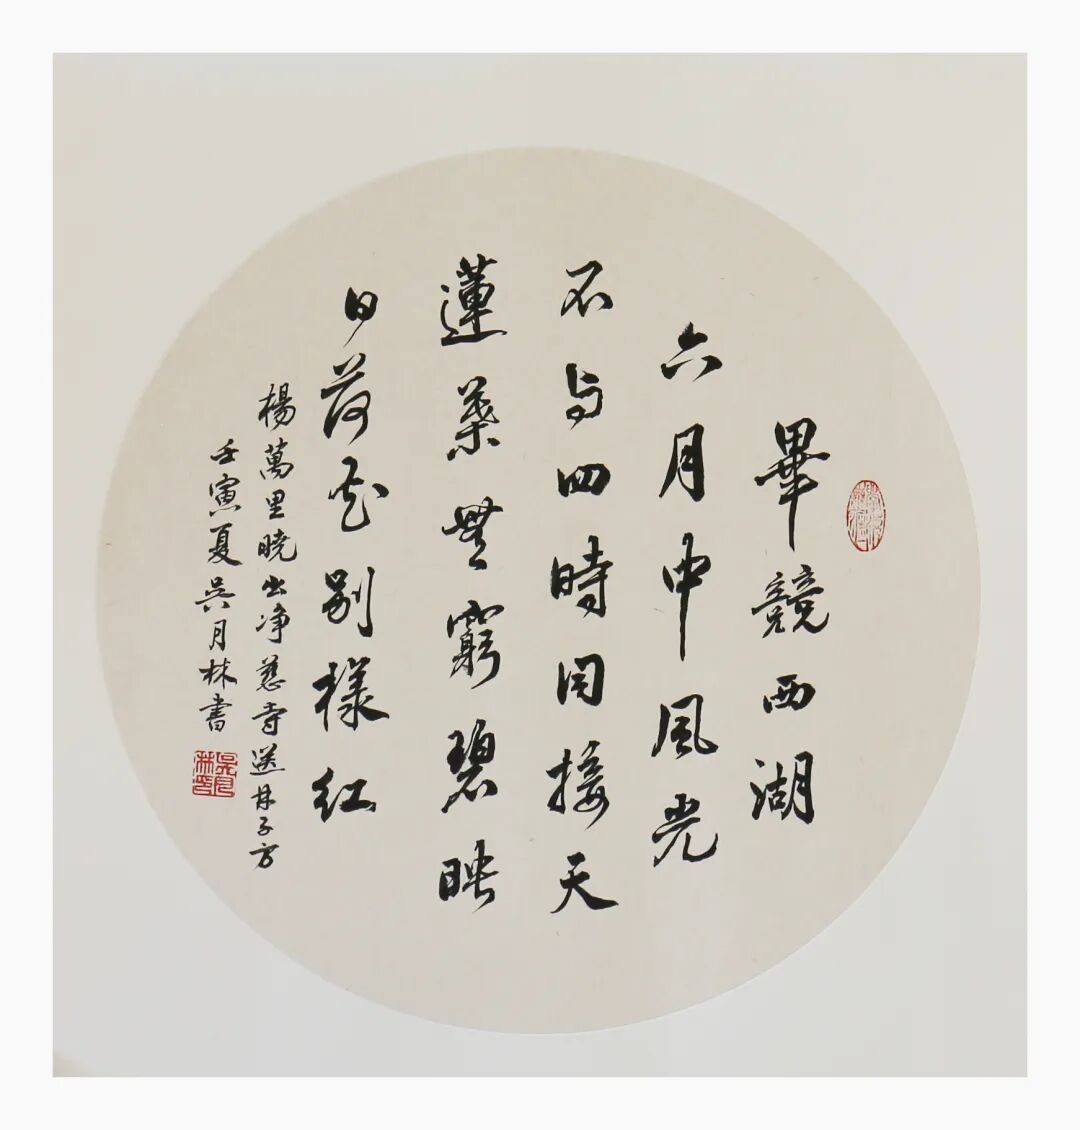 畢競西湖
六月中風光
不与四時同接天
蓮葉無窮碧映
日荷花别樣红
楊萬里曉出净慈寺送林子方
壬寅夏吳月林書